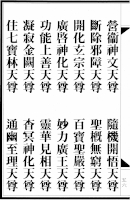 營衛神文天尊　隨機開悟天尊
斷除邪障天尊　聖概無窮天尊
開化玄宗天尊　百寶聖嚴天尊
廣啓神化天尊　妙力廣王天尊
功能上善天尊　靈華見相天尊
凝寂金闕天尊　杳冥神化天尊
住七寶林天尊　通幽至理天尊